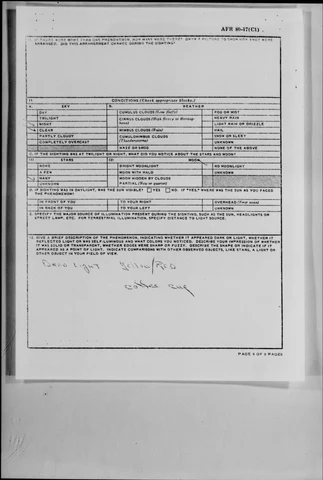 AFR 80-17(C1)
IF THERE WERE MORE THAN ONE PHENOMENON, HOW MANY WERE THERE? DRAW A PICTURE TO SHOW HOW THEY WERE
ARRANGED. DID THIS ARRANGEMENT CHANGE DURING THE SIGHTING?
11. CONDITIONS (Check appropriate blocks.)
A. SKY B. WEATHER
DAY CUMULUS CLOUDS FOG OR MIST
TWILIGHT CIRRUS CLOUDS HEAVY RAIN
NIGHT LIGHT RAIN OR DRIZZLE
CLEAR NIMBUS CLOUDS (Rain) HAIL
PARTLY CLOUDY CUMULONIMBUS CLOUDS SNOW OR SLEET
COMPLETELY OVERCAST (Thunderstorms) UNKNOWN
HAZE OR SMOG NONE OF THE ABOVE
IF THE SIGHTING WAS AT TWILIGHT OR NIGHT, WHAT DID YOU NOTICE ABOUT THE STARS AND MOON?
(1) STARS (2) MOON
NONE BRIGHT MOONLIGHT NO MOONLIGHT
A FEW MOON WITH HALO UNKNOWN
MANY MOON HIDDEN BY CLOUDS
UNKNOWN PARTIAL
IF SIGHTING WAS IN DAYLIGHT, WAS THE SUN VISIBLE? YES NO. IF "YES," WHERE WAS THE SUN AS YOU FACED
THE PHENOMENON?
IN FRONT OF YOU TO YOUR RIGHT OVERHEAD
IN BACK OF YOU TO YOUR LEFT UNKNOWN
SPECIFY THE MAJOR SOURCE OF ILLUMINATION PRESENT DURING THE SIGHTING, SUCH AS THE SUN, HEADLIGHTS OR
STREET LAMP, ETC. FOR TERRESTRIAL ILLUMINATION, SPECIFY DISTANCE TO LIGHT SOURCE.
GIVE A BRIEF DESCRIPTION OF THE PHENOMENON, INDICATING WHETHER IT APPEARED DARK OR LIGHT, WHETHER IT
REFLECTED LIGHT OR WAS SELF-LUMINOUS AND WHAT COLORS YOU NOTICED. DESCRIBE YOUR IMPRESSION OF WHETHER
IT WAS SOLID OR TRANSPARENT, WHETHER EDGES WERE SHARP OR FUZZY. DESCRIBE THE SHAPE OR INDICATE IF IT
APPEARED AS A POINT OF LIGHT. INDICATE COMPARISONS WITH OTHER OBSERVED OBJECTS, LIKE STARS, A LIGHT OR
OTHER OBJECT IN YOUR FIELD OF VIEW.
Light
PAGE 4 OF 5 PAGES